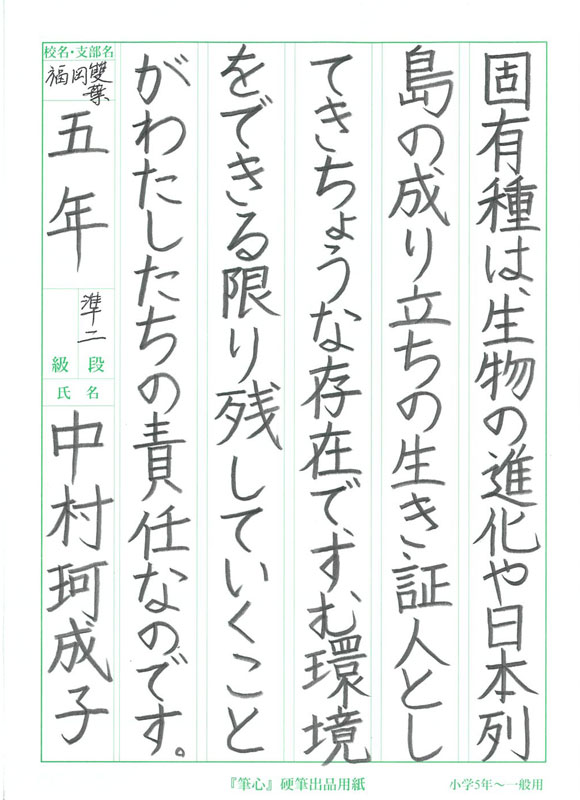 固有種は、生物の進化や日本列
島の成り立ちの生き証人とし
てきちょうな存在で、すむ環境
をできる限り残していくこと
がわたしたちの責任なのです。
校名・支部名
福岡雙葉
五年
準二
級 段
氏名
中村珂成子
『筆心』硬筆出品用紙
小学5年～一般用